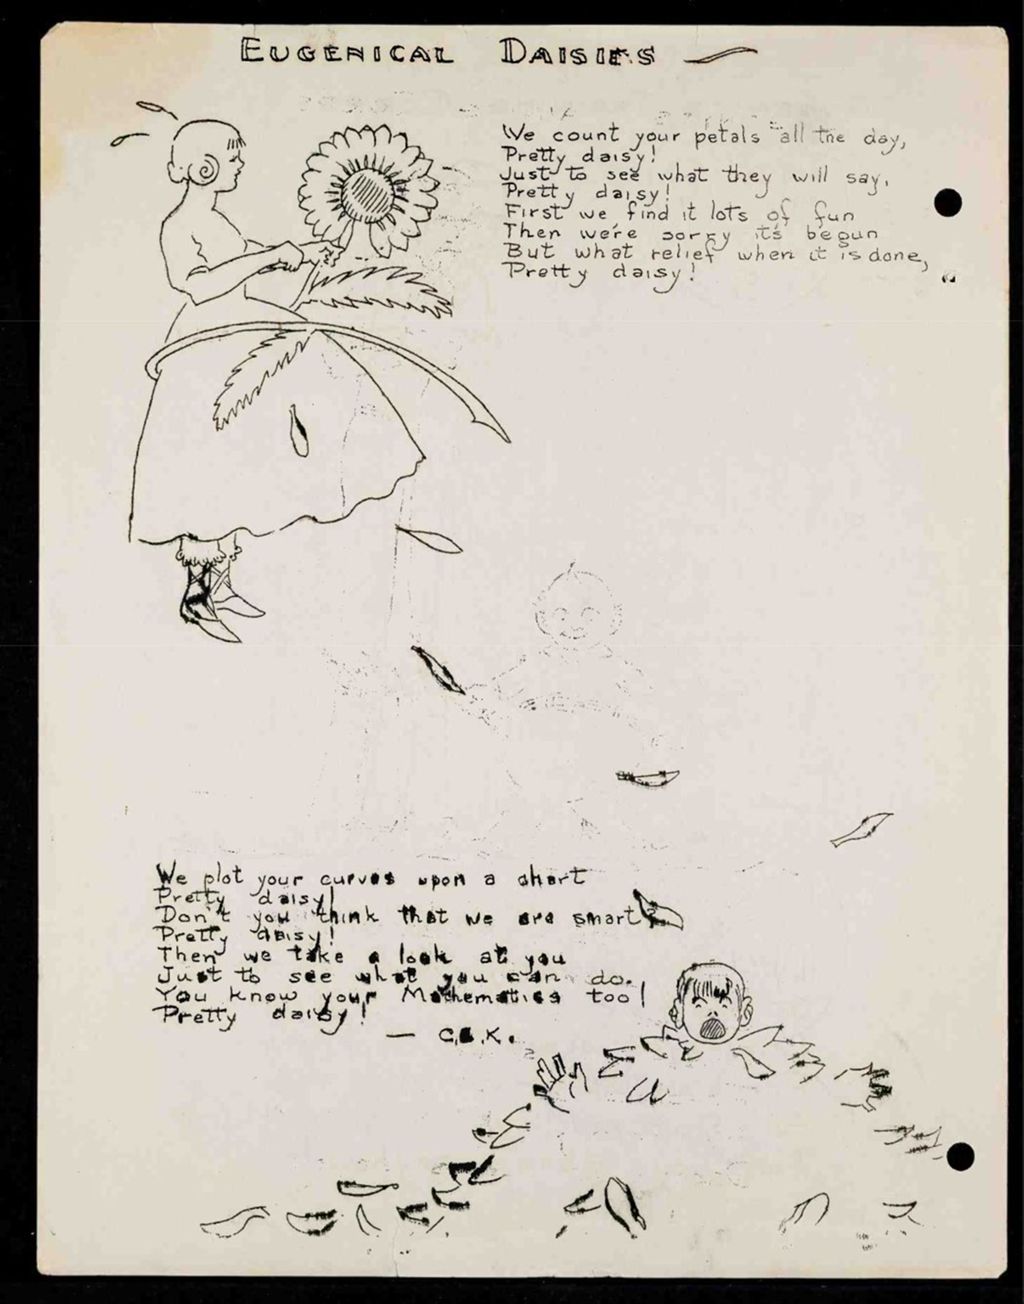 EUGENICAL DAISIES
We count your petals all the day,
Pretty daisy!
Just to see what they will say,
Pretty daisy!
First we find it lots of fun
Then we're sorry it's begun
But what relief when it is done,
Pretty daisy!
We plot your curves upon a chart
Pretty daisy!
Don't you think that we are smart
Pretty daisy!
Then we take a look at you
Just to see what you can do.
You know your Mathematics too!
Pretty daisy!
— C.B.K.